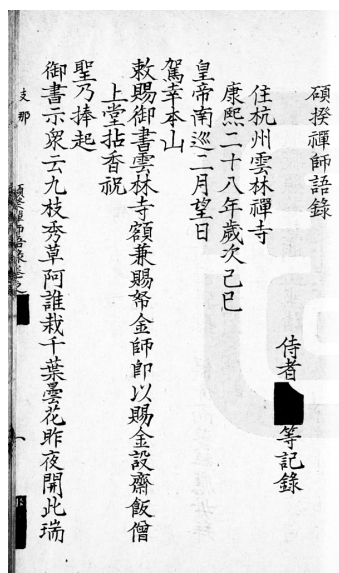 碩揆禪師語錄
侍者
等記錄
住杭州雲林禪寺
康熙二十八年歲次己巳
皇帝南巡二月望日
駕幸本山
敕賜御書雲林寺額兼賜帑金師卽以賜金設齋飯僧
上堂拈香祝
聖乃捧起
御書示衆云九枝秀草阿誰栽千葉曇花昨夜開此瑞
支那
碩揆禪師語錄卷之
一